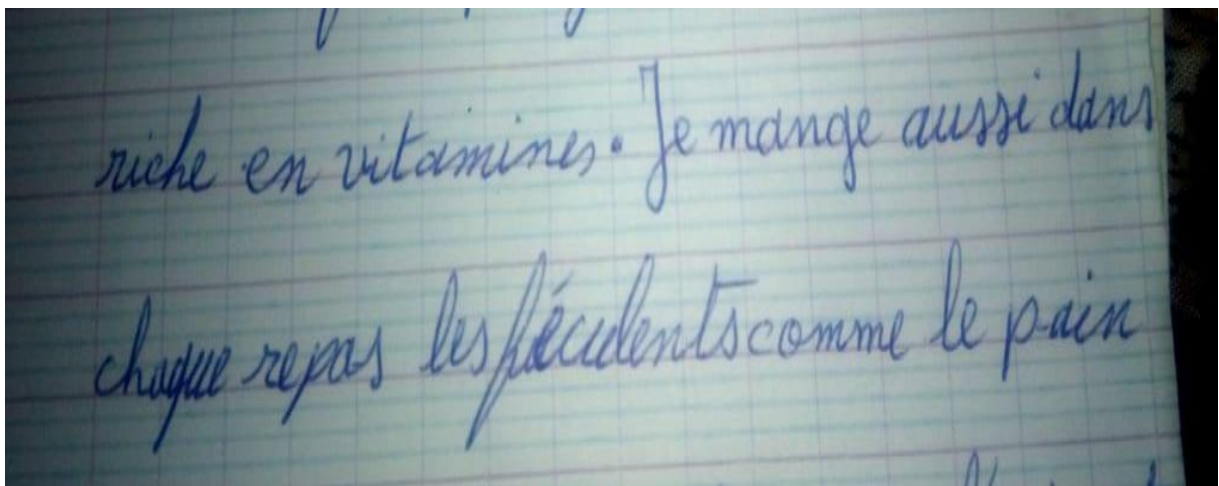 riche en vitamines. Je mange aussi dans
chaque repas les fécudents comme le pain